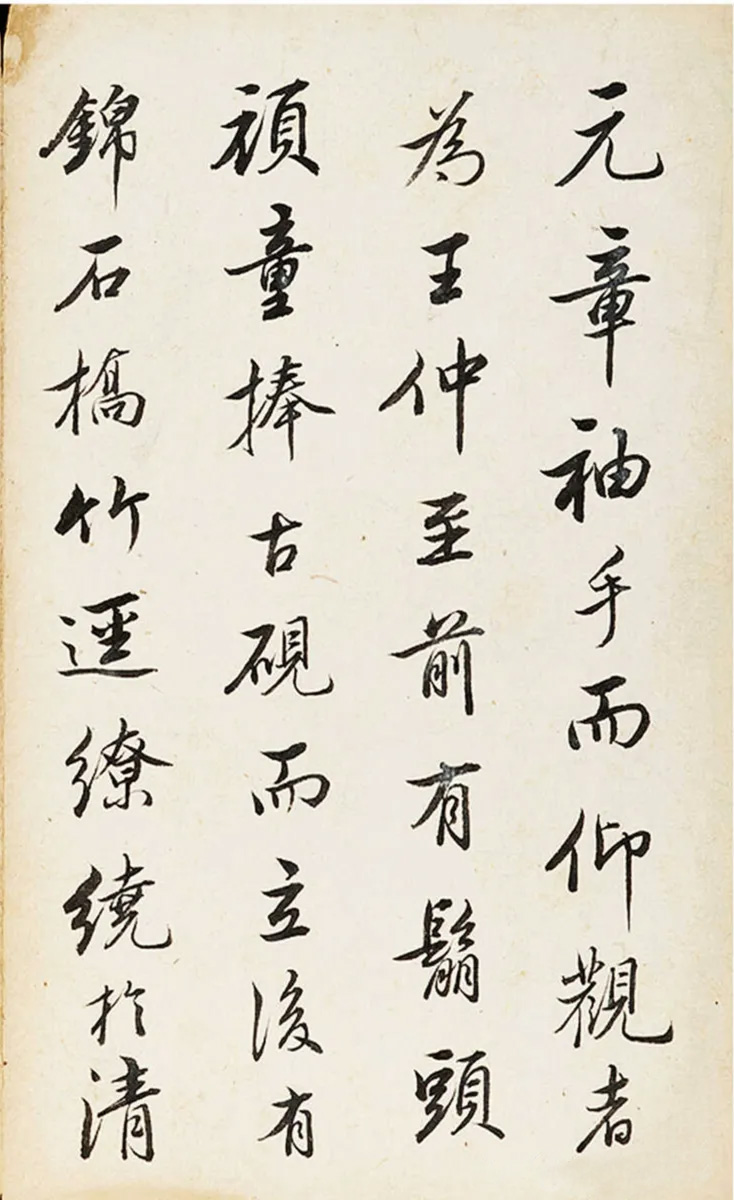 元章袖手而仰觀者
為王仲至前有鬅頭
頑童捧古硯而立後有
錦石橋竹逕繚繞於清